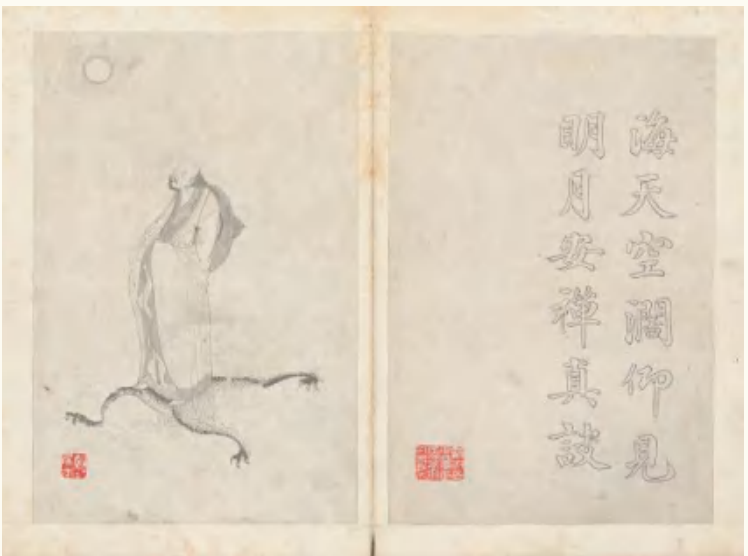 海天空濶仰見
明月安禪真訣